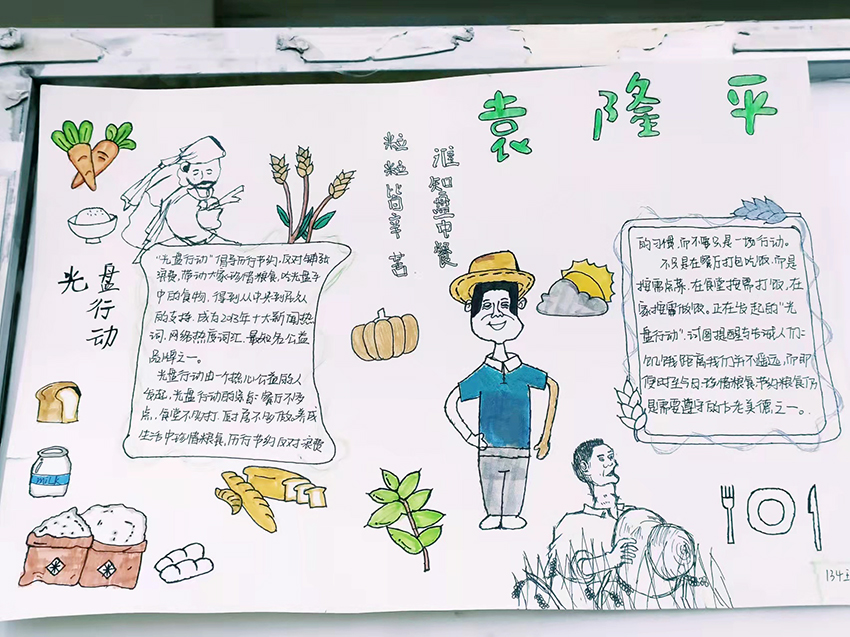 袁隆平
谁知盘中餐
粒粒皆辛苦
光盘行动
“光盘行动”倡导厉行节约,反对铺张
浪费,带动大家珍惜粮食,吃光盘子
中的食物,得到从中央到民众
的支持,成为2013年十大新闻热
词、网络热度词汇,最知名公益
品牌之一。
光盘行动由一个热心公益的人
发起,光盘行动的宗旨:餐厅不多
点、食堂不多打、厨房不多做。养成
生活中珍惜粮食,厉行节约反对浪费
的习惯,而不要只是一场行动。
不只是在餐厅打包吃饭,而是
按需点菜,在食堂按需打饭,在
家按需做饭。正在发起的“光
盘行动”,试图提醒与告诫人们:
饥饿距离我们并不遥远,而即
便时至今日,珍惜粮食节约粮食仍
是需要遵守的古老美德之一。
milk
134